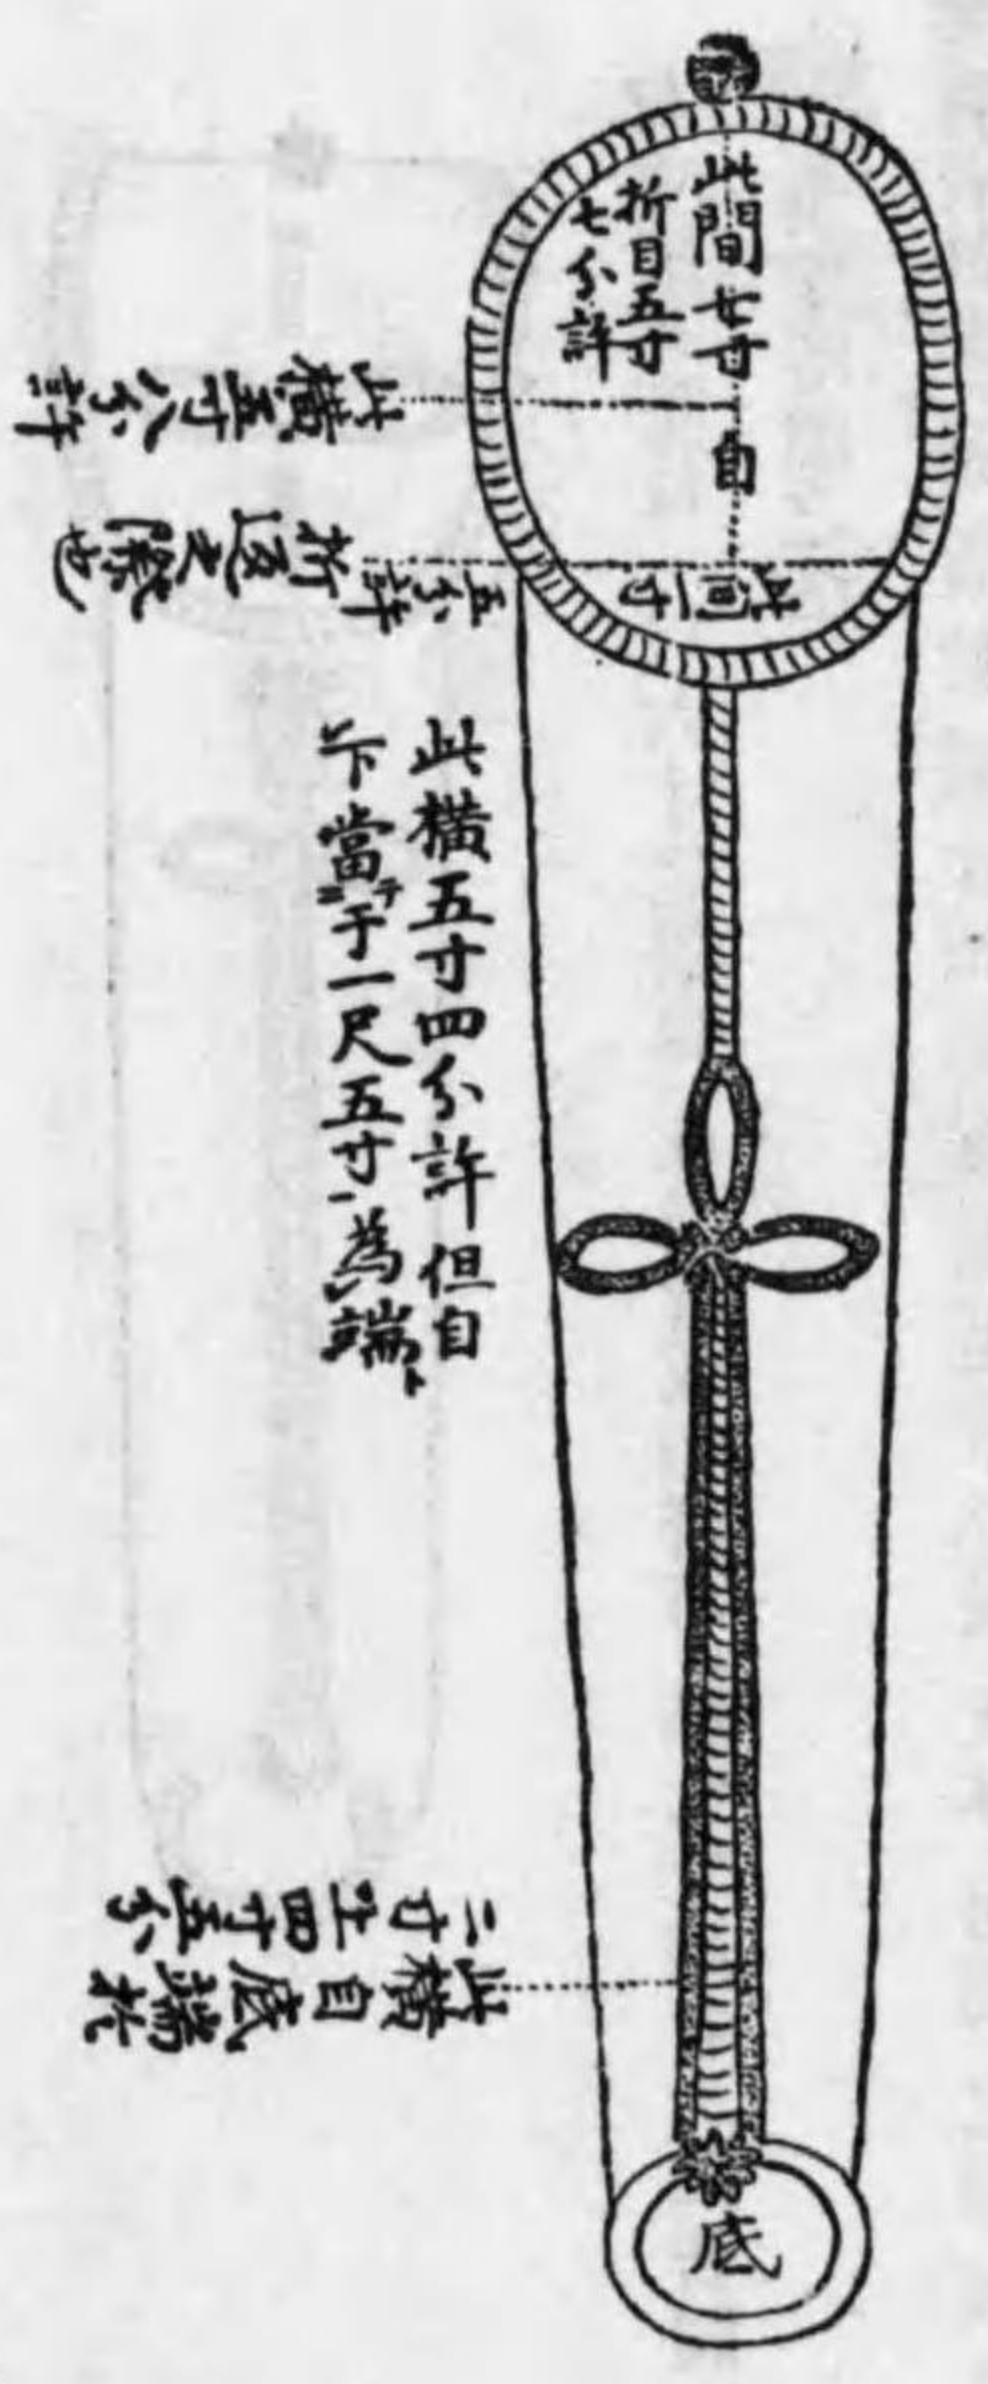 此間七寸
自
折目五寸
七分許
此横五寸八分許
此间一寸
五分許
折返之際也
此横五寸四分許但自
上下當テ于一尺五寸為端ト
此横自底端於
二寸上四寸五分
底